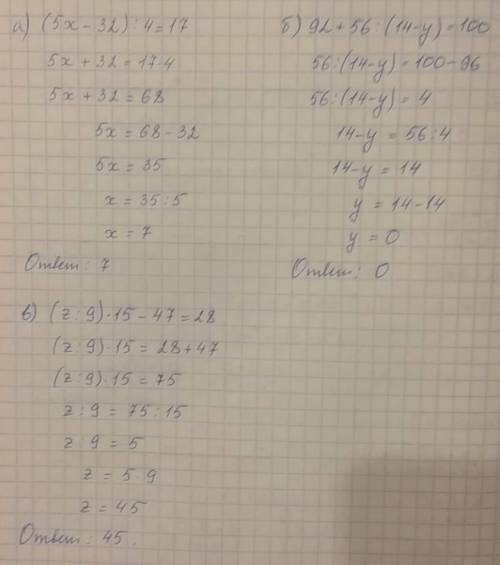 а) (5x - 32) : 4 = 17
5x + 32 = 17·4
5x + 32 = 68
5x = 68 - 32
5x = 35
x = 35 : 5
x = 7
Ответ: 7
б) 92 + 56 : (14 - y) = 100
56 : (14 - y) = 100 - 96
56 : (14 - y) = 4
14 - y = 56 : 4
14 - y = 14
y = 14 - 14
y = 0
Ответ: 0
в) (z : 9) · 15 - 47 = 28
(z : 9) · 15 = 28 + 47
(z : 9) · 15 = 75
z : 9 = 75 : 15
z : 9 = 5
z = 5 · 9
z = 45
Ответ: 45.